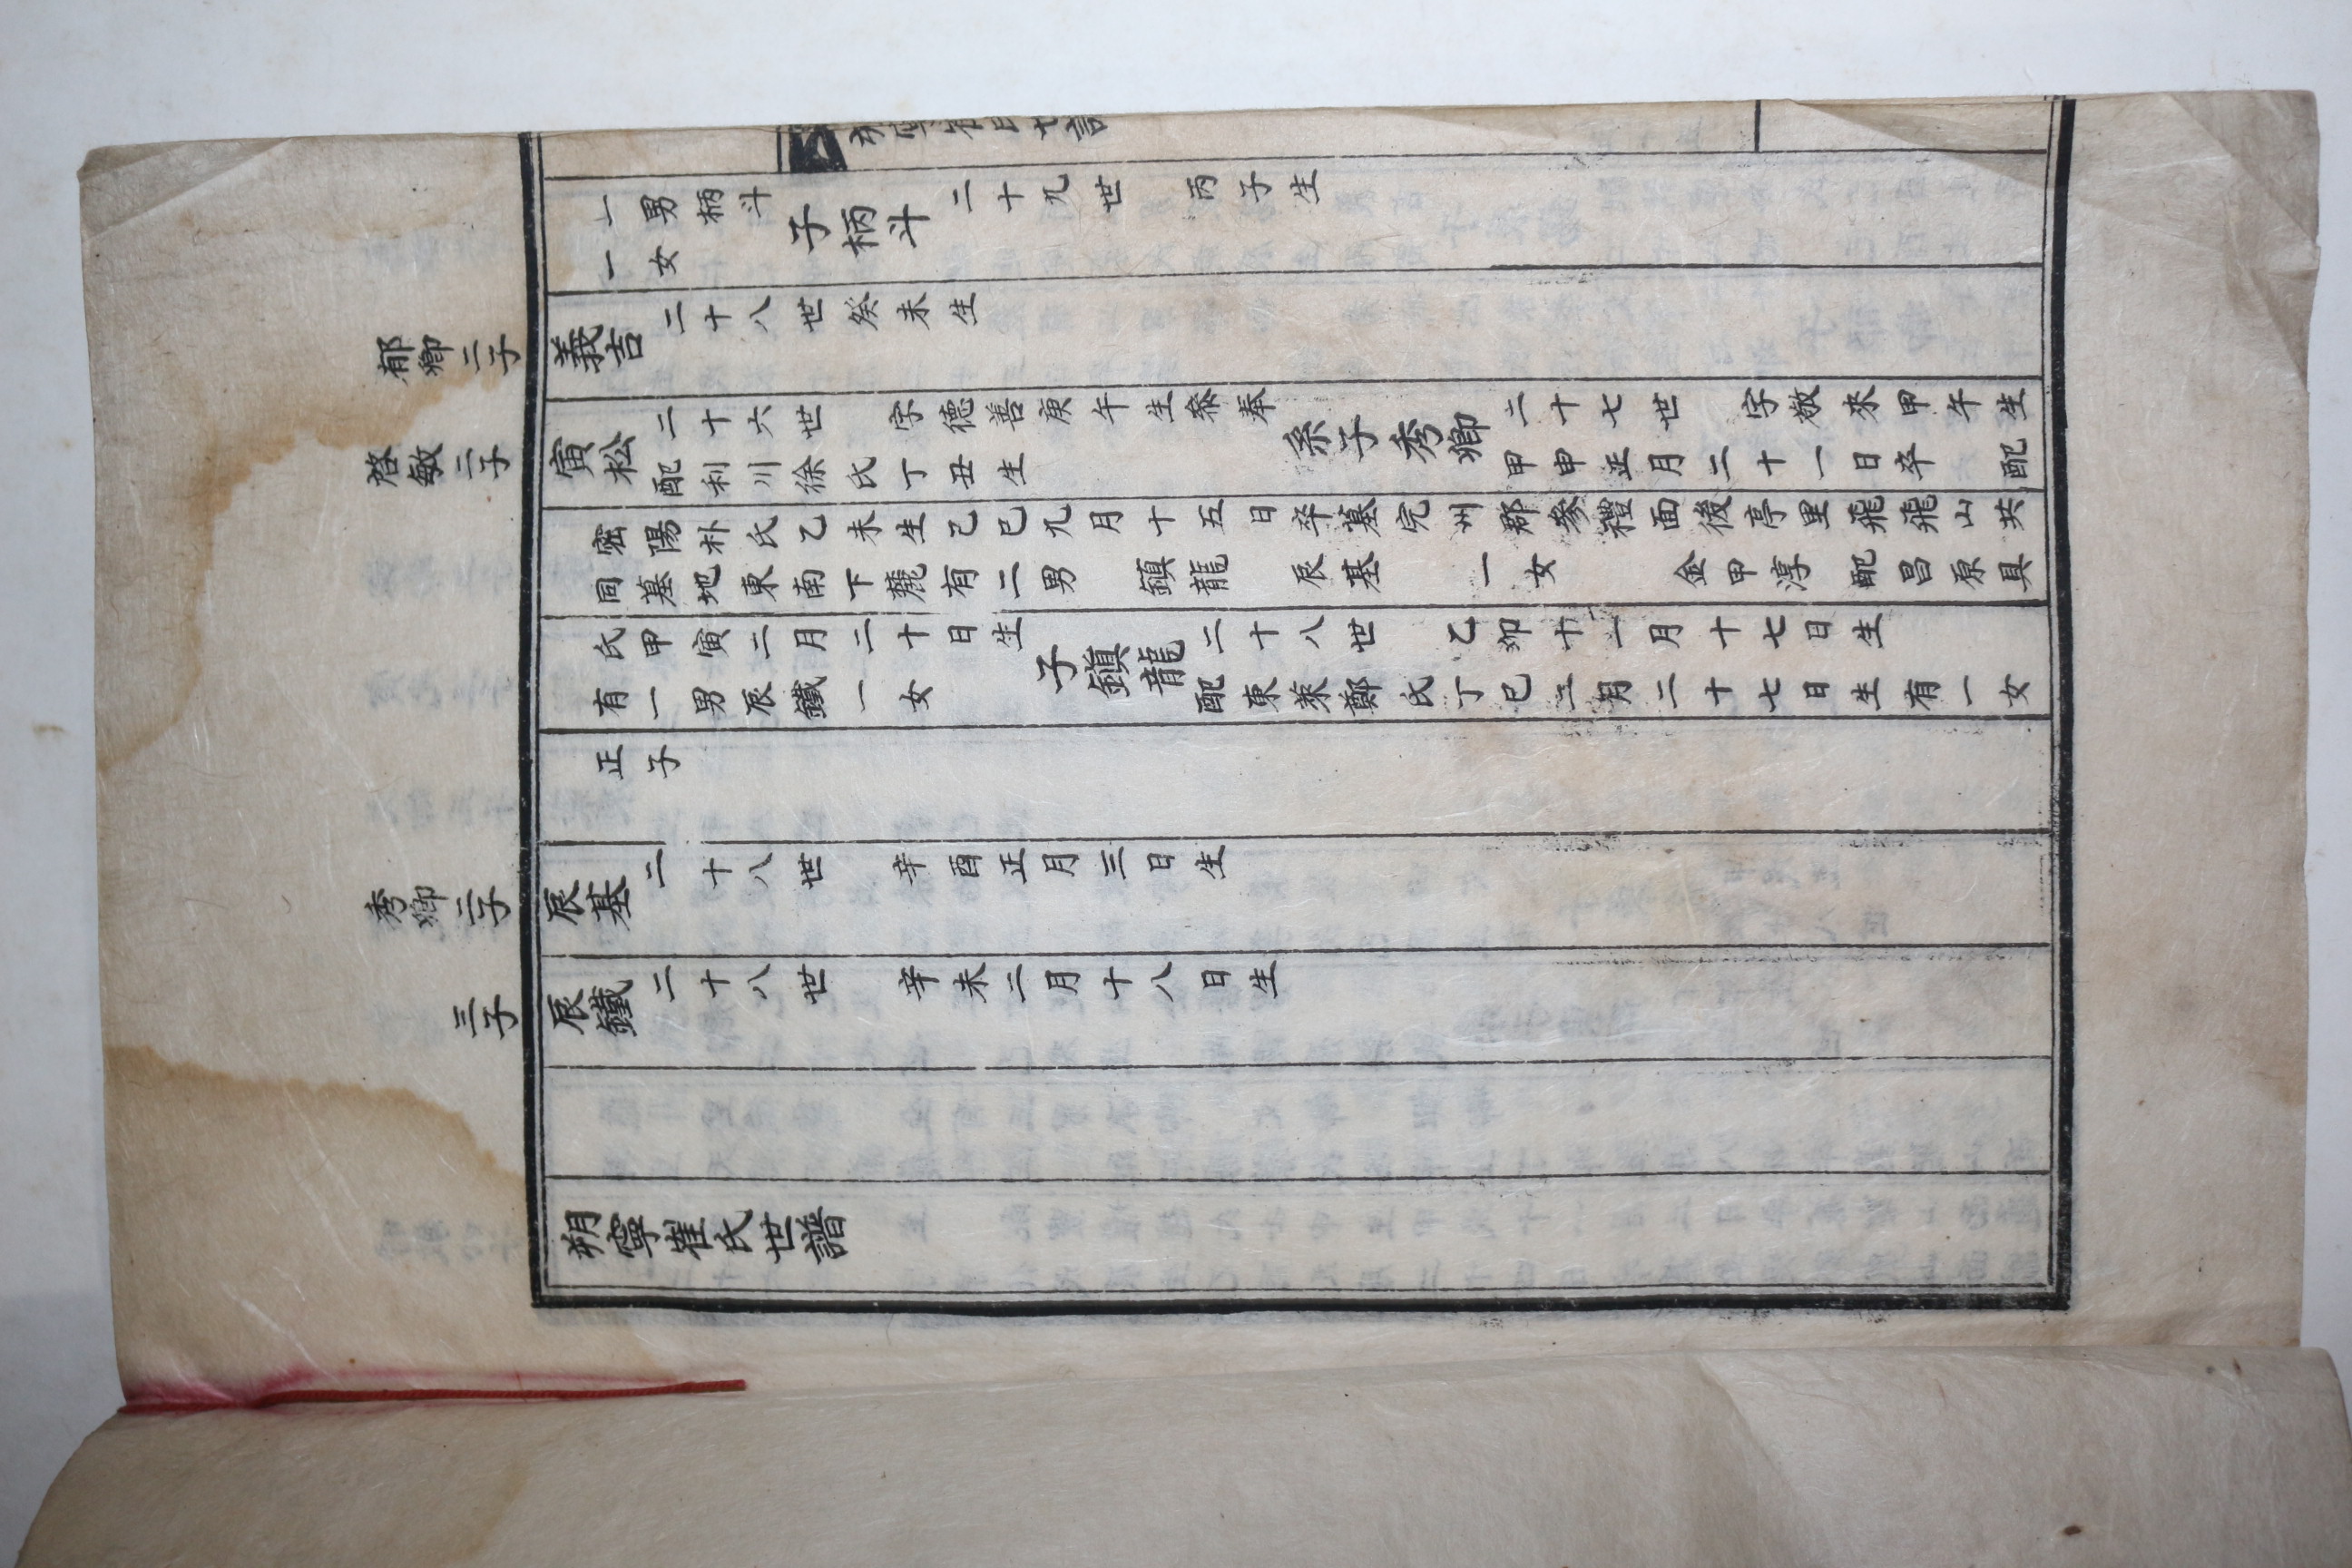 朔寧崔氏世譜
一男柄斗
一女
子柄斗
二十九世 丙子生
郁卿二子
義吉
二十八世癸未生
啓敏二子
寅松
二十六世 字德善庚午生叅奉
配利川徐氏丁丑生
系子秀卿
二十七世 字敬來甲午生
甲申正月二十一日卒 配
密陽朴氏乙未生己巳九月十五日卒墓完州郡參禮面後亭里飛飛山共
同墓地東南下麓有二男 鎮龍 辰基 一女 金甲淳 配昌原具
氏甲寅二月二十日生
有一男辰鐵一女
子鎮龍
二十八世 乙卯十一月十七日生
配東萊鄭氏丁巳二月二十七日生有一女
正子
秀卿二子
辰基
二十八世 辛酉正月三日生
三子
辰鐵
二十八世 辛未二月十八日生
朔寧崔氏世譜